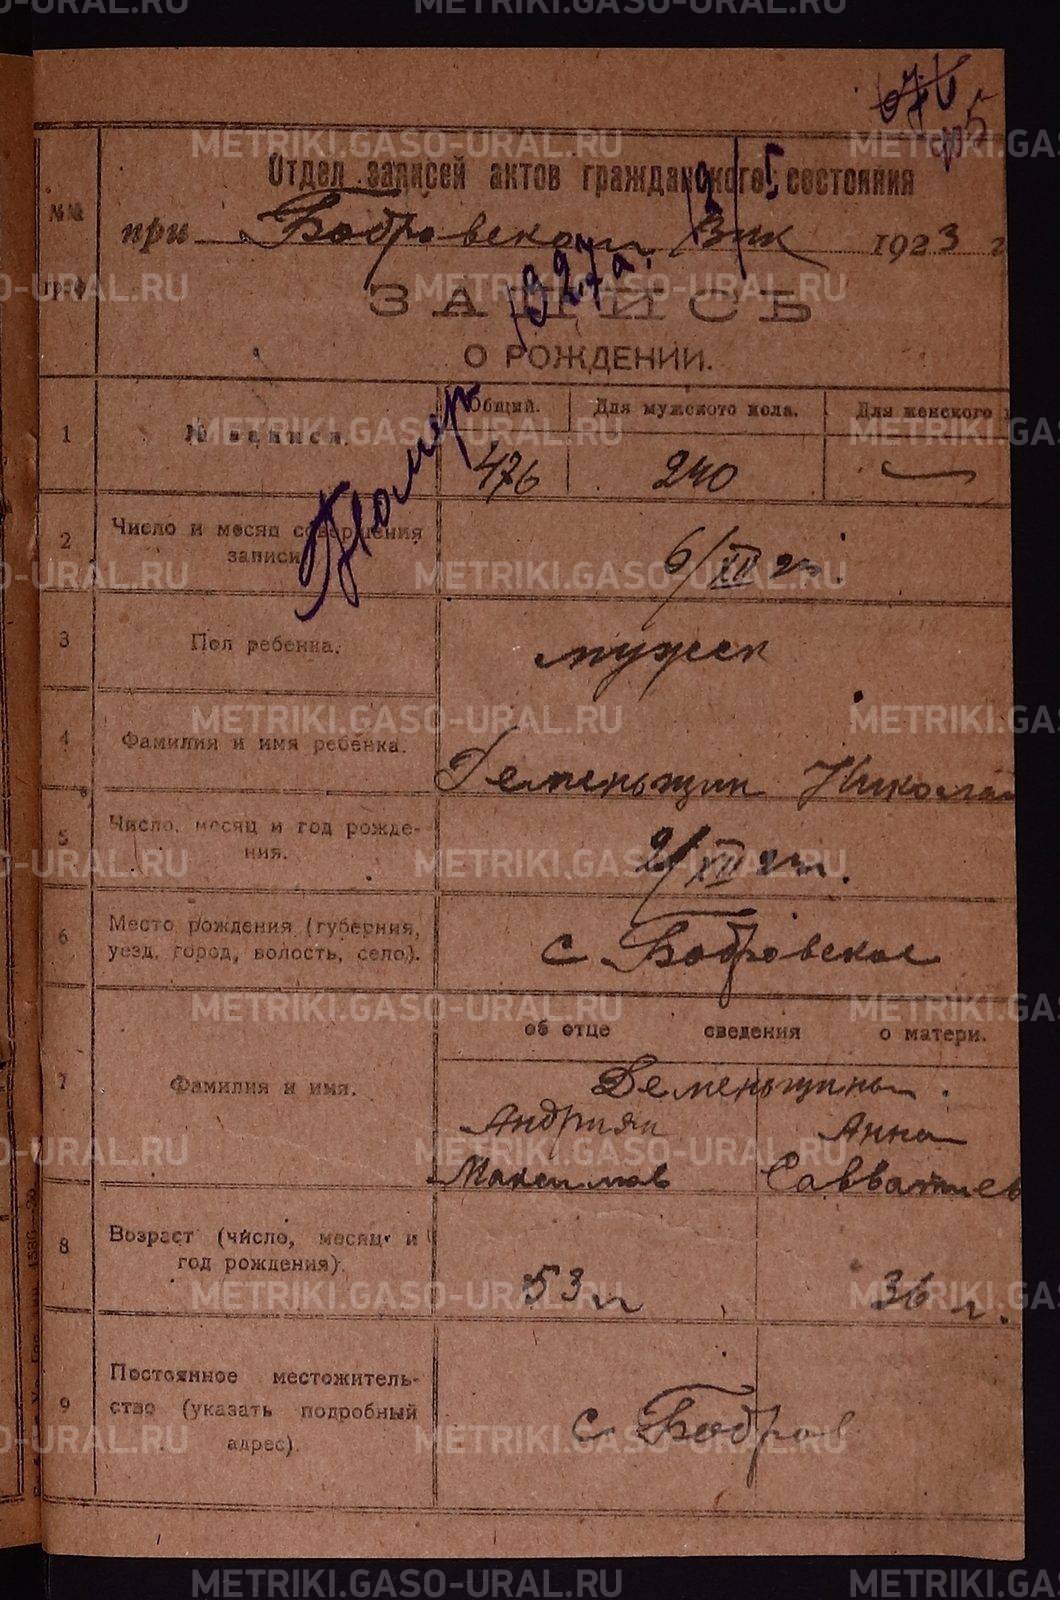 405
Отдел записей актов гражданского состояния
№№ граф
при Бобровском Вик 1923 г
ЗАПИСЬ
О РОЖДЕНИИ.
Помер 2/5 1927 г.
1 № записи. Общий. Для мужского пола. Для женского
476 240 —
2 Число и месяц совершения записи 6/XII 23 г.
3 Пол ребенка. мужск
4 Фамилия и имя ребенка. Деменьщин Николай
5 Число, месяц и год рождения. 2/XII 23 г.
6 Место рождения (губерния, уезд, город, волость, село). с Бобровское
об отце сведения о матери.
7 Фамилия и имя. Деменьщины.
Андриян Анна
Максимов Савватиев
8 Возраст (число, месяц и год рождения). 53 г 36 г.
9 Постоянное местожительство (указать подробный адрес). с Бобров
METRIKI.GASO-URAL.RU